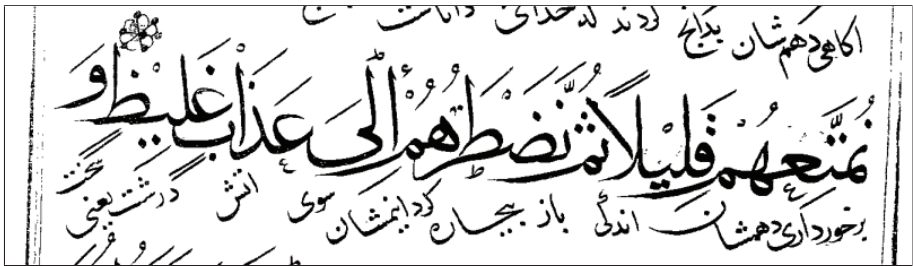 اکاهی دهم شان بدانچ کردند که خدای
نُمَتِّعُهُمْ قَلِيلًا ثُمَّ نَضْطَرُّهُمْ اِلٰى عَذَابٍ غَلِيظٍ وَ
برخورداری دهمشان اندکی باز بیچاره کردانیمشان سوی اتش درشت یعنی سخت